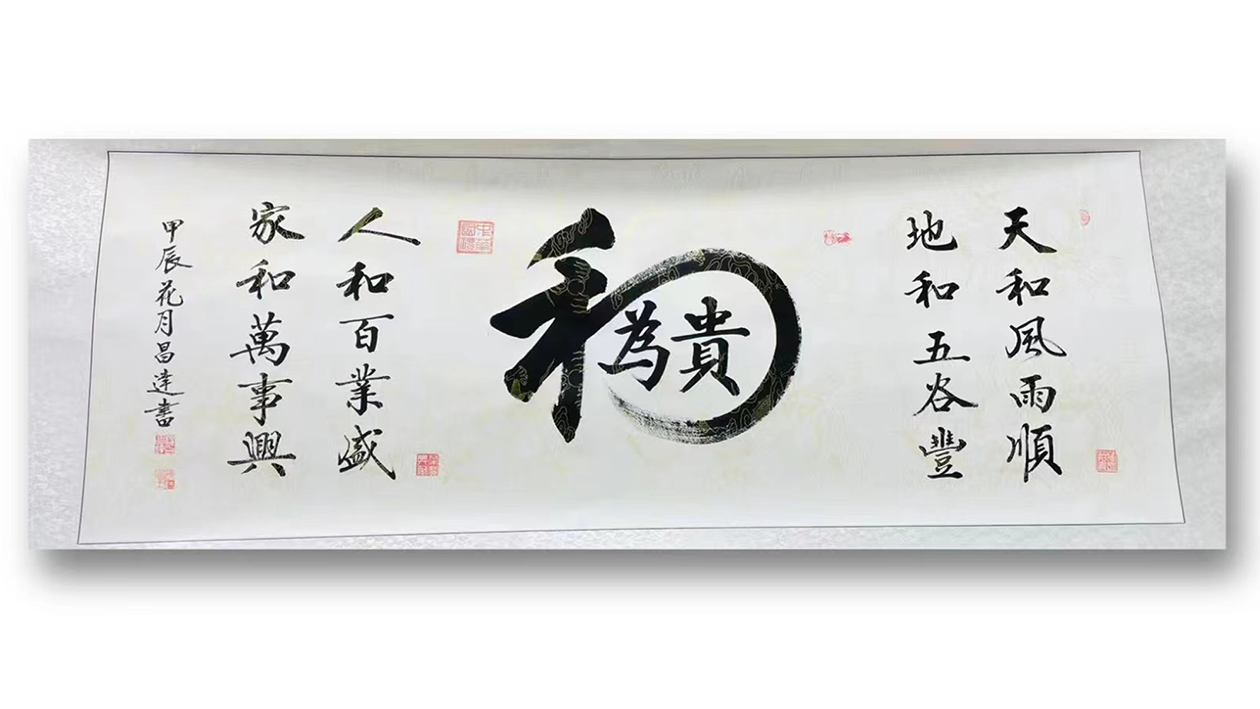 天和風雨順
地和五谷豐
和為貴
人和百業盛
家和萬事興
甲辰花月昌達書